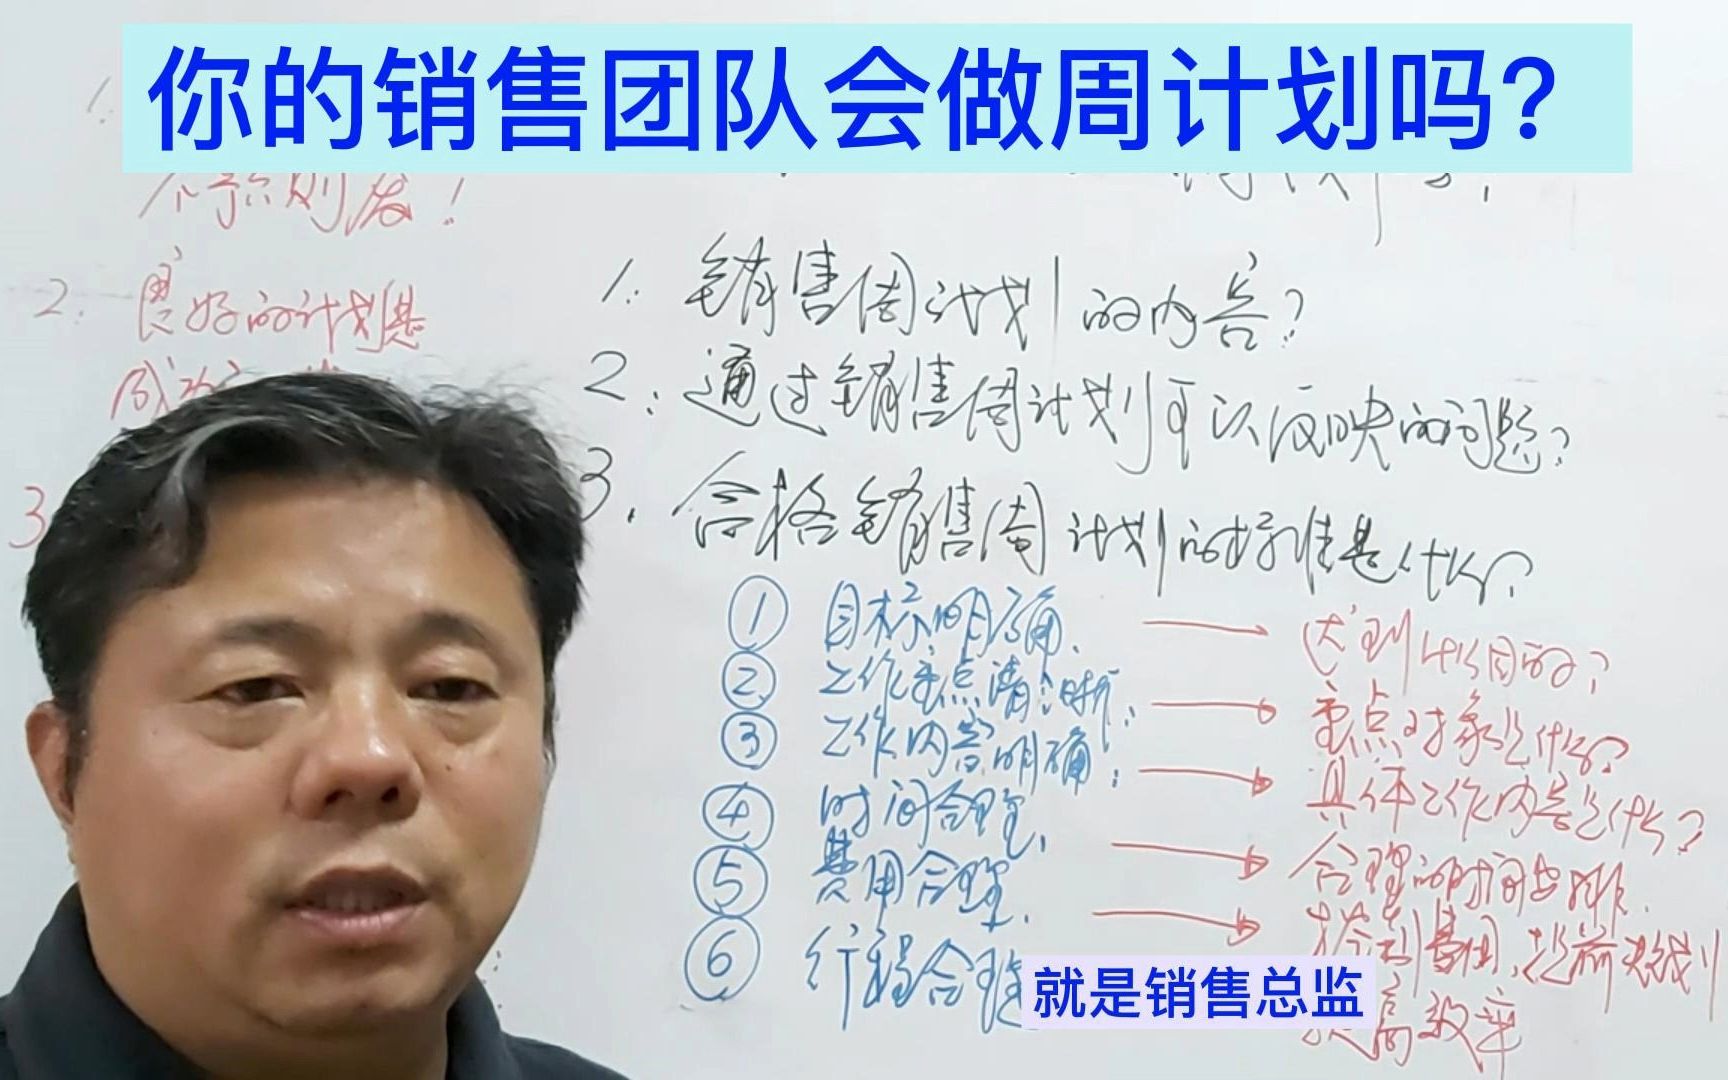 你的销售团队会做周计划吗?
1.
不预则废!
2. 良好的计划是
成功
3
1. 销售周计划的内容?
2. 通过销售周计划可以反映的问题?
3. 合格销售周计划的标准是什么?
① 目标明确. → 达到什么目的?
② 工作重点清晰; → 重点对象是什么?
③ 工作内容明确; → 具体工作内容是什么?
④ 时间合理, → 合理的时间安排.
⑤ 费用合理. → 范围, 提前规划
⑥ 行程合理 提高效率
就是销售总监